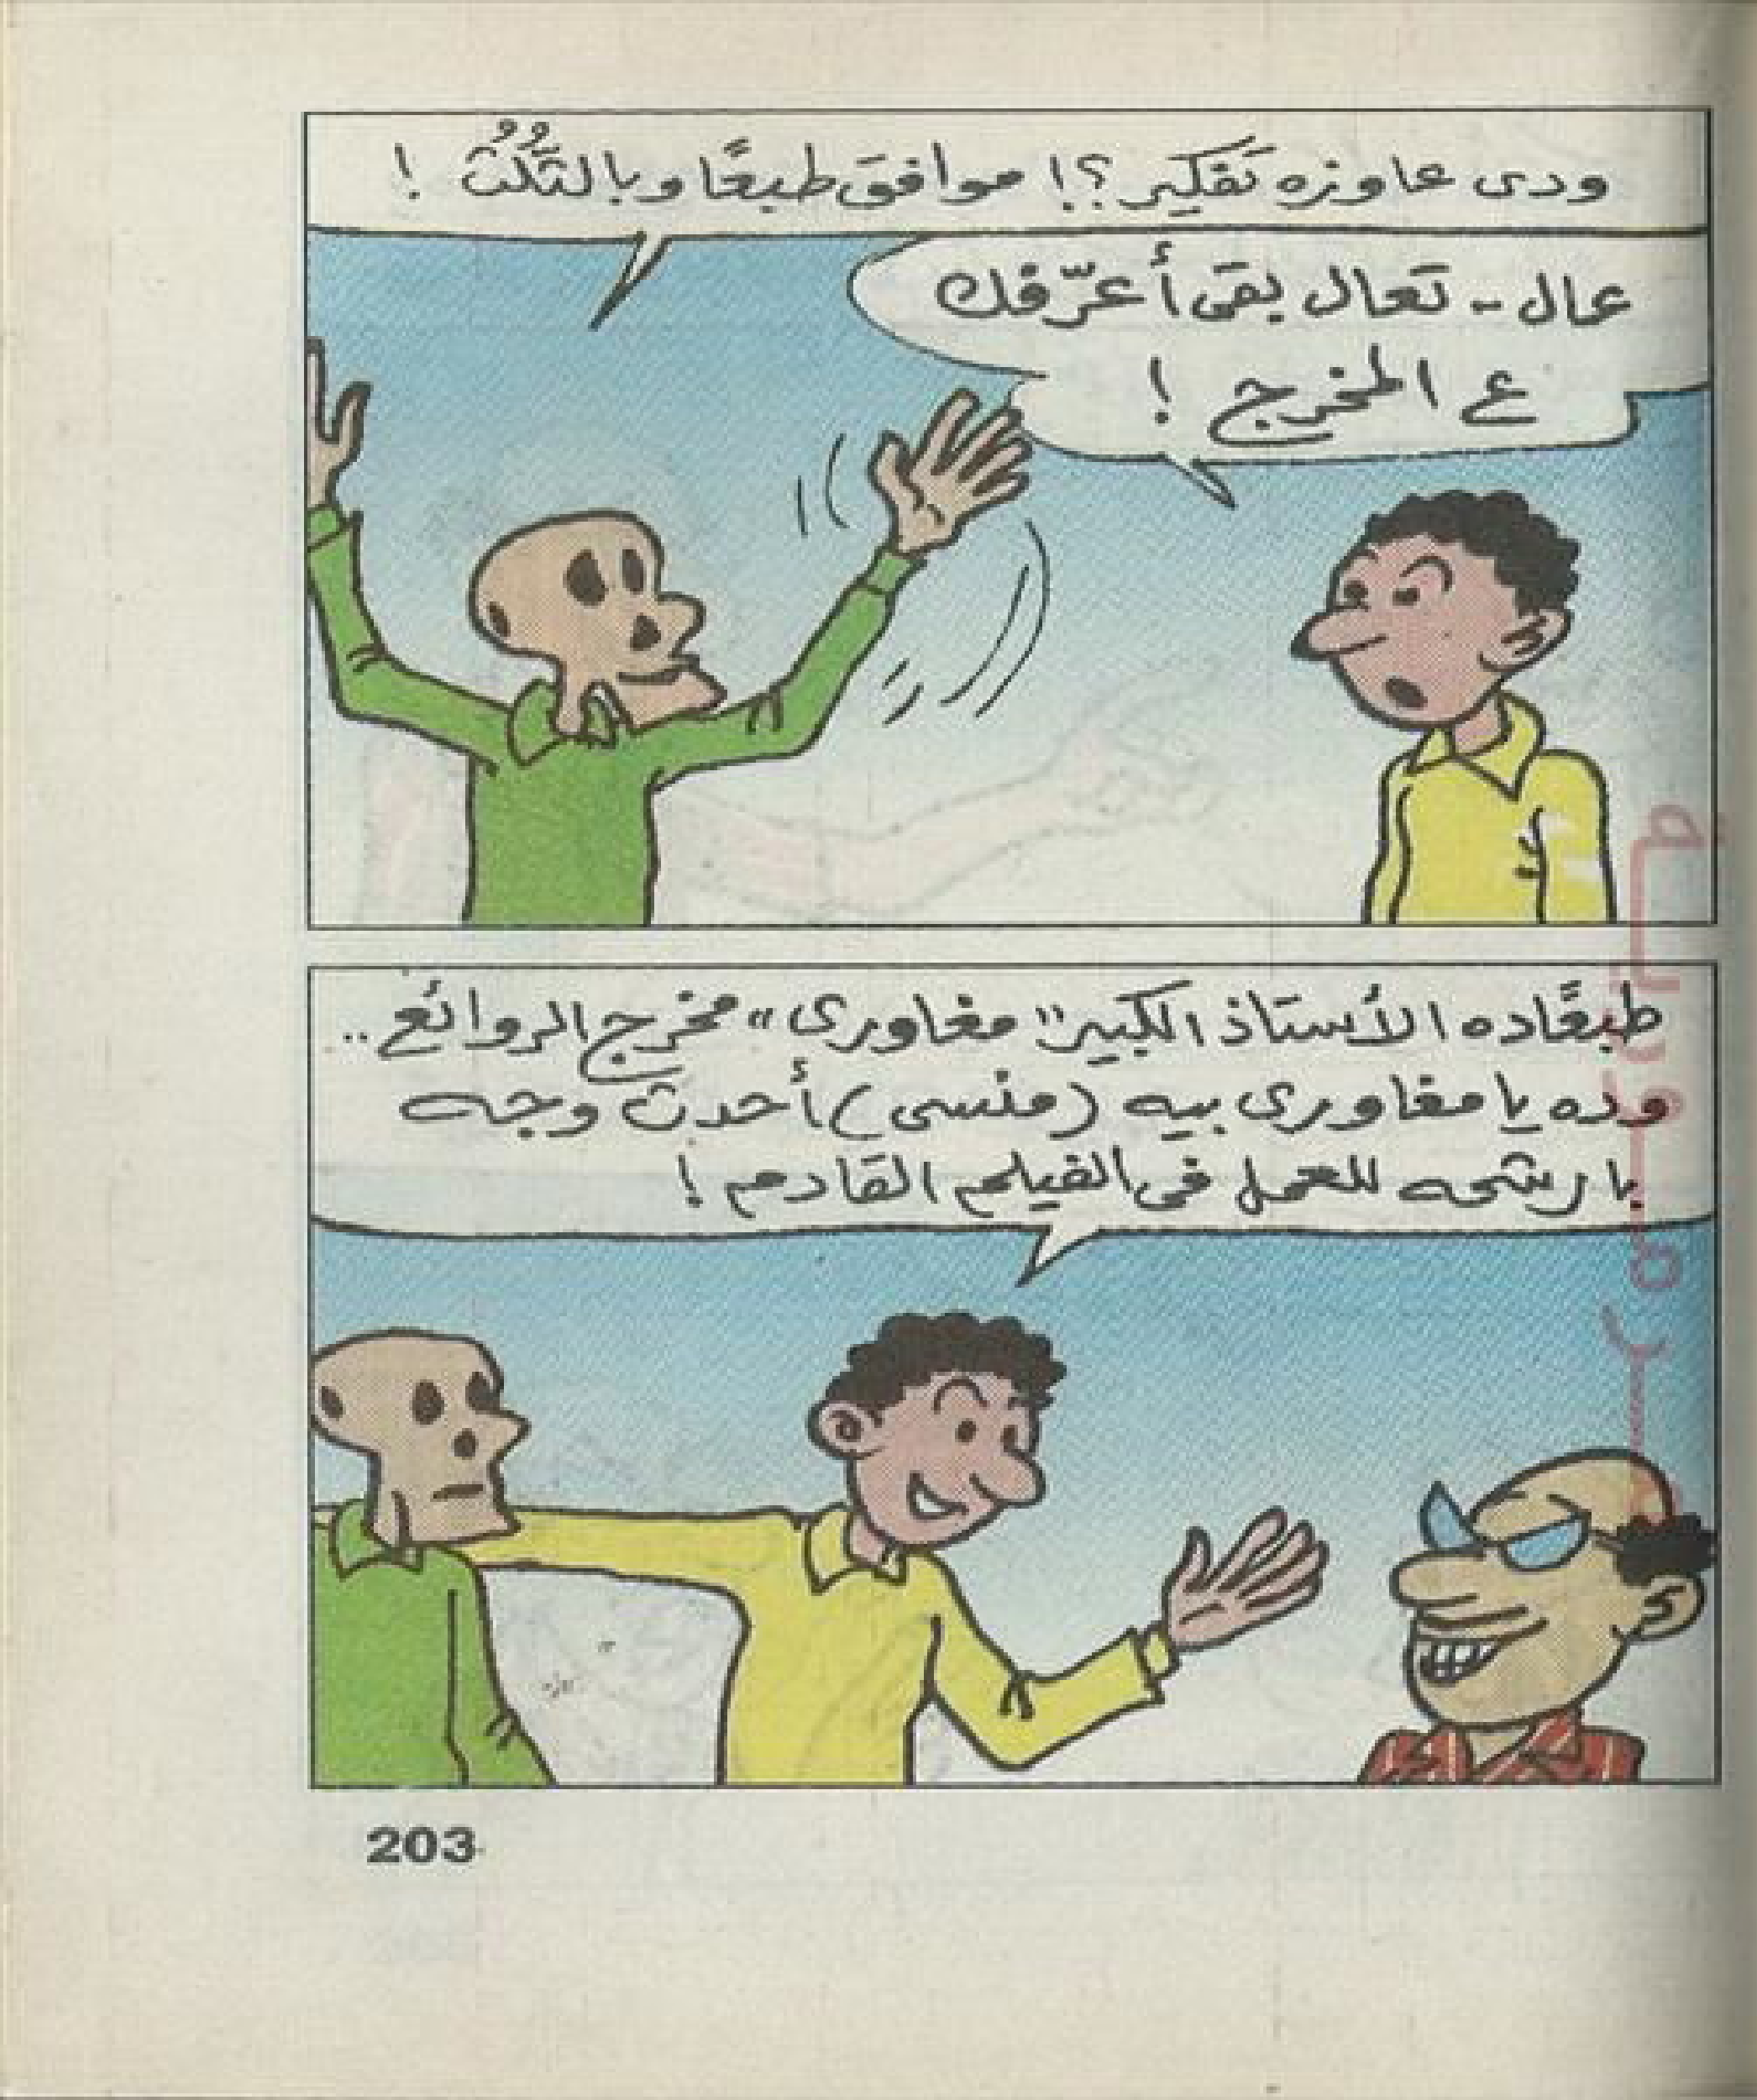 ودى عاوزه تفكير؟! موافق طبعًا وبالتَّلُتْ !
عال - تعال بقى أعرّفك
ع المخرج !
طبعًا ده الأستاذ الكبير "مغاورى" مخرج الروائع ..
وده يا مغاورى بيه (منسى) أحدث وجه
بارشحه للعمل فى الفيلم القادم !
203